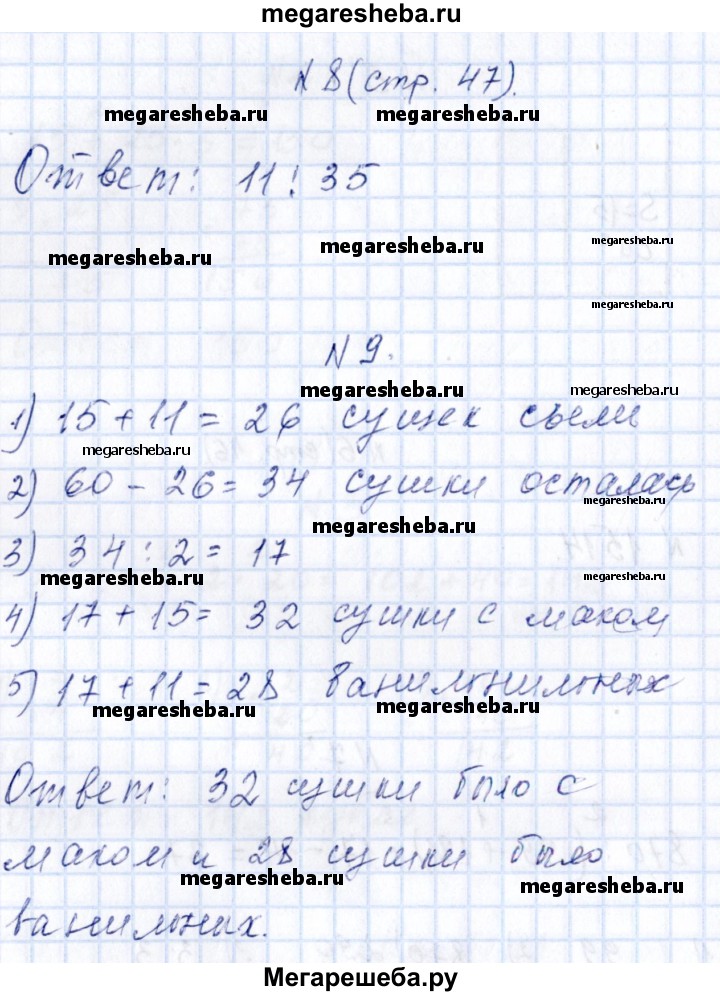 megaresheba.ru
N 8 (стр. 47).
megaresheba.ru megaresheba.ru
Ответ: 11 : 35
megaresheba.ru megaresheba.ru megaresheba.ru
megaresheba.ru
N 9.
megaresheba.ru megaresheba.ru
1) 15 + 11 = 26 сушек съели
megaresheba.ru
2) 60 - 26 = 34 сушки осталась
megaresheba.ru
3) 34 : 2 = 17
megaresheba.ru megaresheba.ru
4) 17 + 15 = 32 сушки с маком
5) 17 + 11 = 28 ванильнильных
megaresheba.ru megaresheba.ru
Ответ: 32 сушки было с
маком и 28 сушки было
megaresheba.ru megaresheba.ru
ванильних.
Мегарешеба.ру